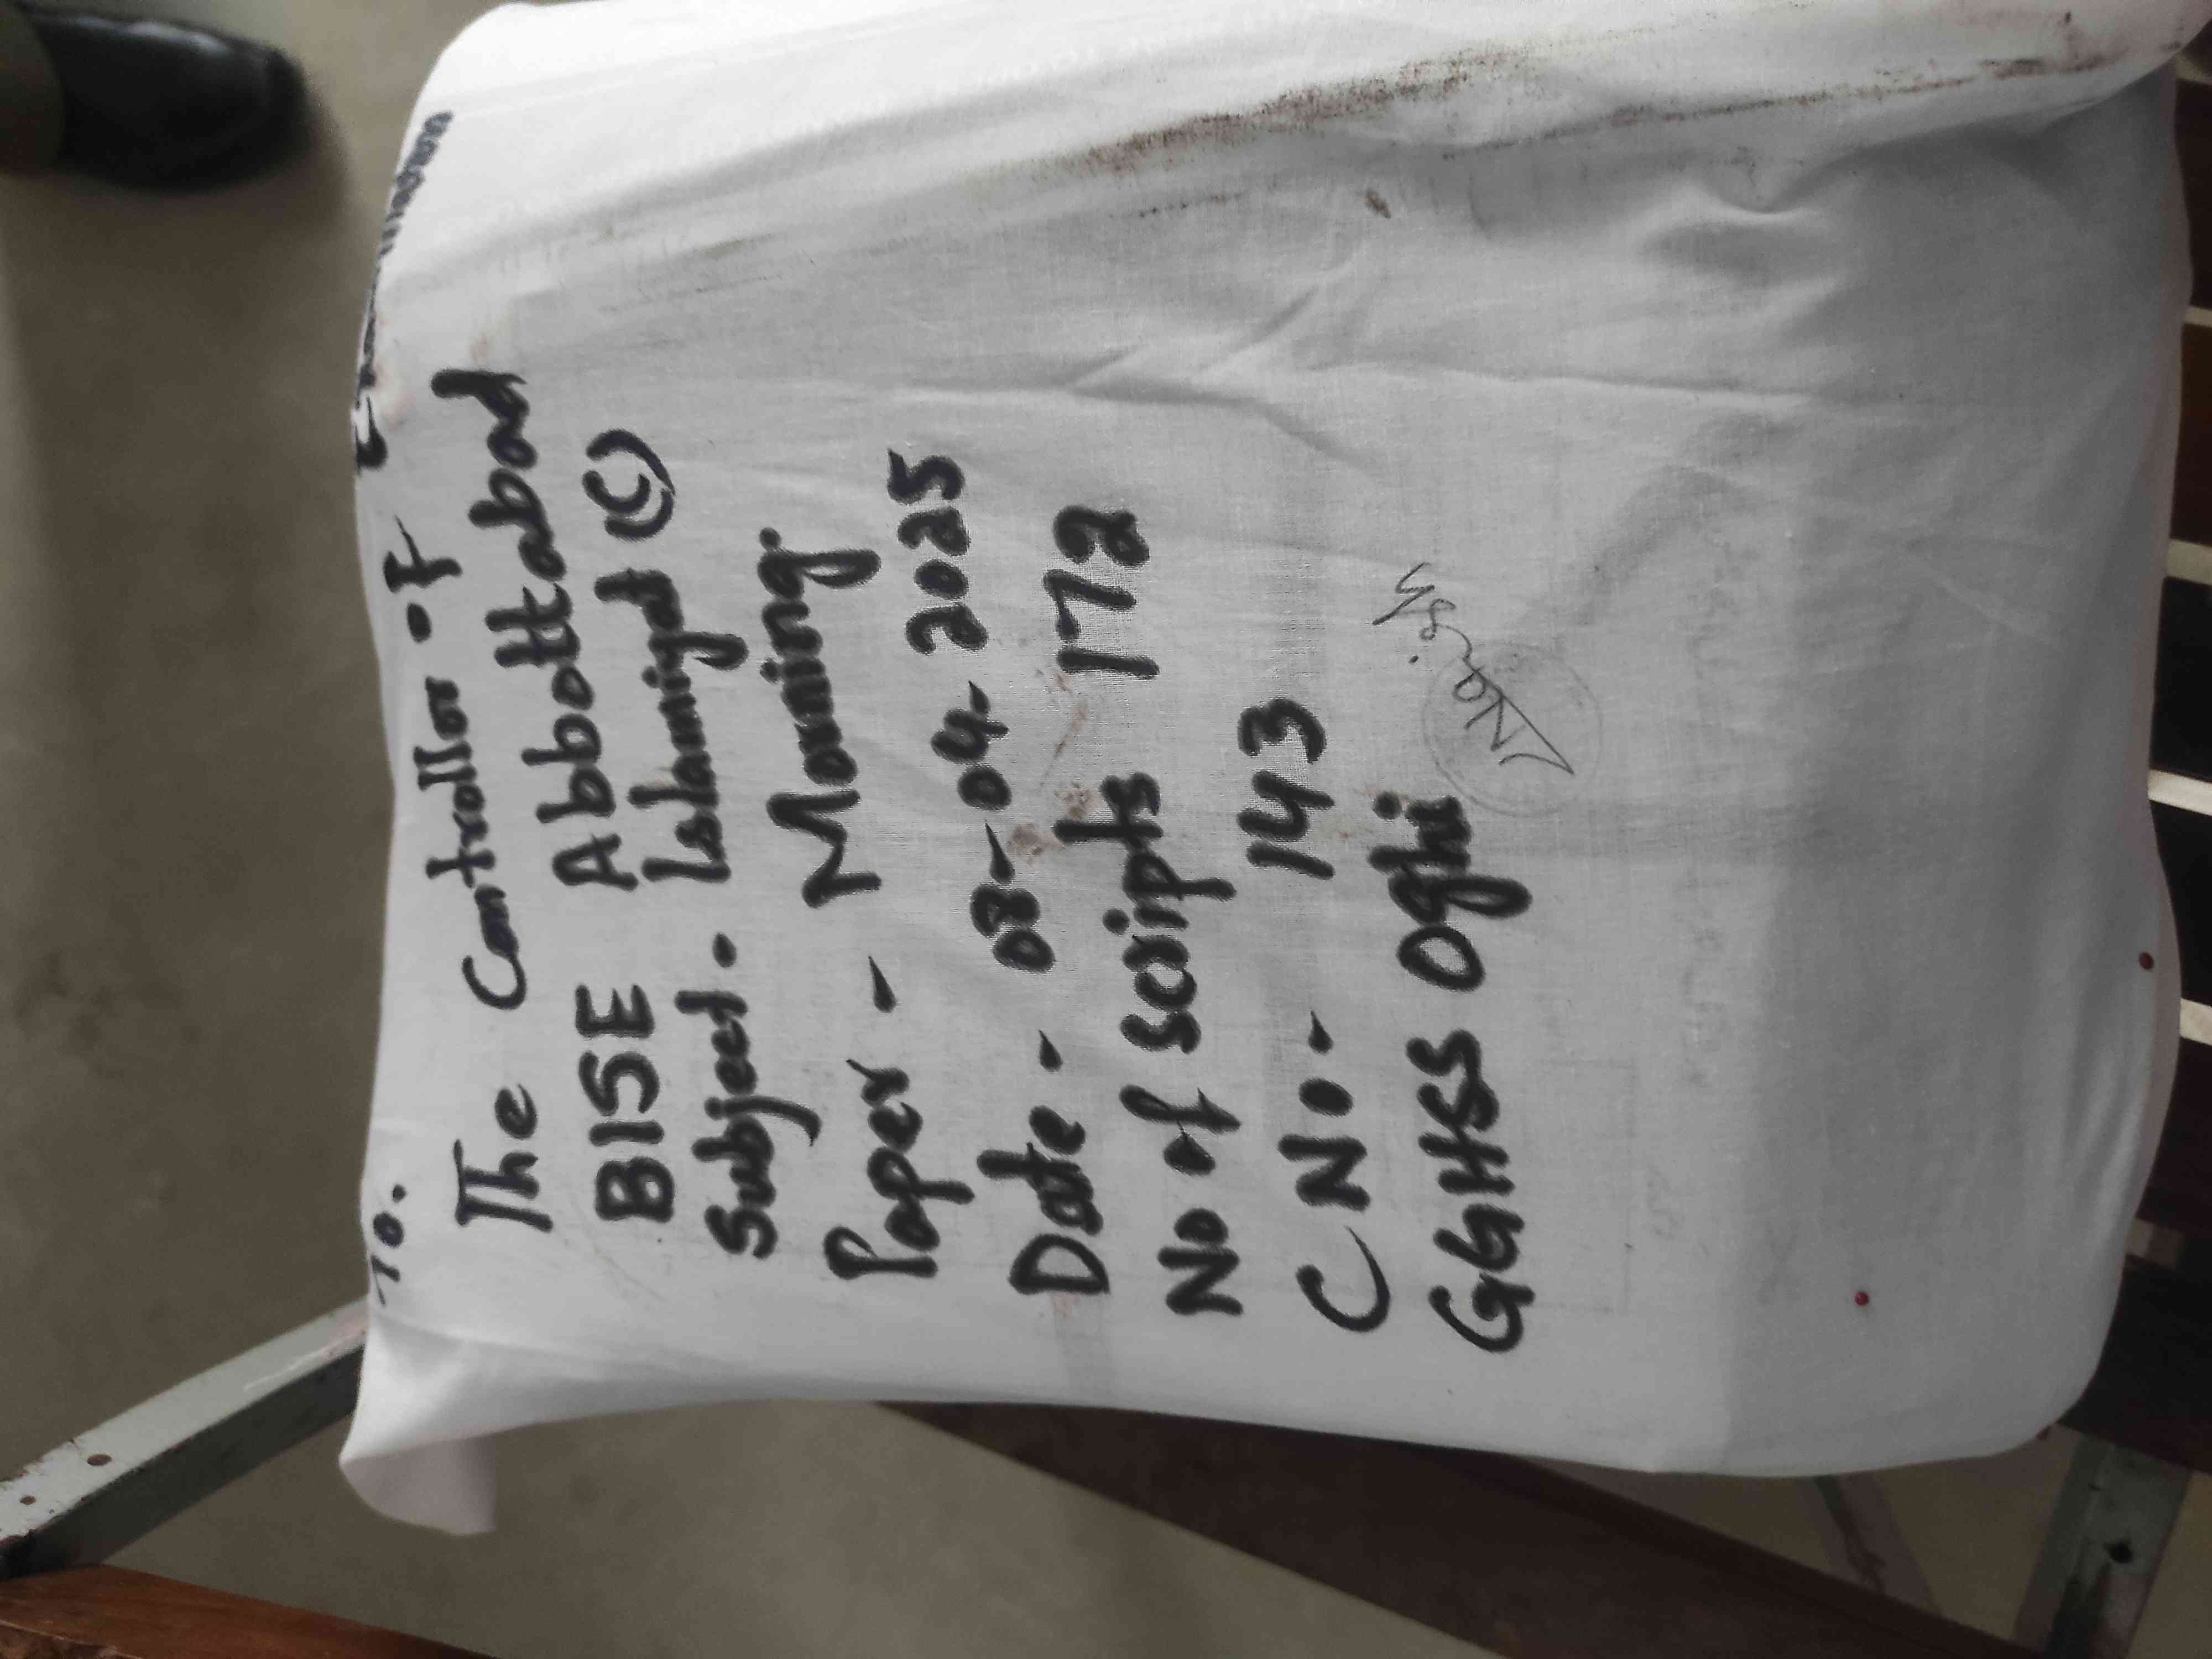 To.
The Controller of Examination
BISE Abbottabad
Subject - Islamiyat (C)
Paper - Morning
Date - 08-04-2025
No of scripts 172
C No - 143
GGHSS Oghi